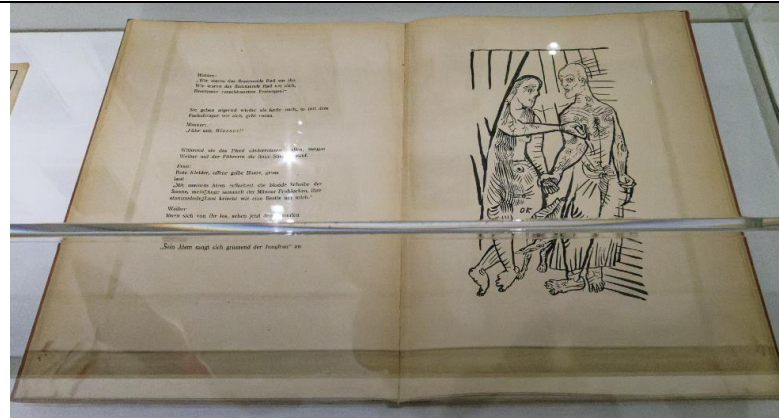 Männer:
„Wir waren das flammende Rad um ihn.
Wir waren das flammende Rad um dich,
Bestürmer verschlossener Festungen!"
Sie gehen zögernd wieder als Kette nach, er mit dem
Fackelträger vor sich, geht voran.
Männer:
„Führ uns, Blasser!"
Während sie das Pferd
Weiber auf die Führerin die linke
Frau:
Rote Kleider, offene gelbe Haare, groß
laut
„Mit meinem Atem erflackert die blonde Scheibe der
Sonne, mein Auge sammelt der Männer Frohlocken, ihre
stammelnde Lust kriecht wie eine Bestie um mich."
Weiber
lösen sich von ihr los, sehen jetzt den
„Sein Atem saugt sich grüssend der Jungfrau" an
OK